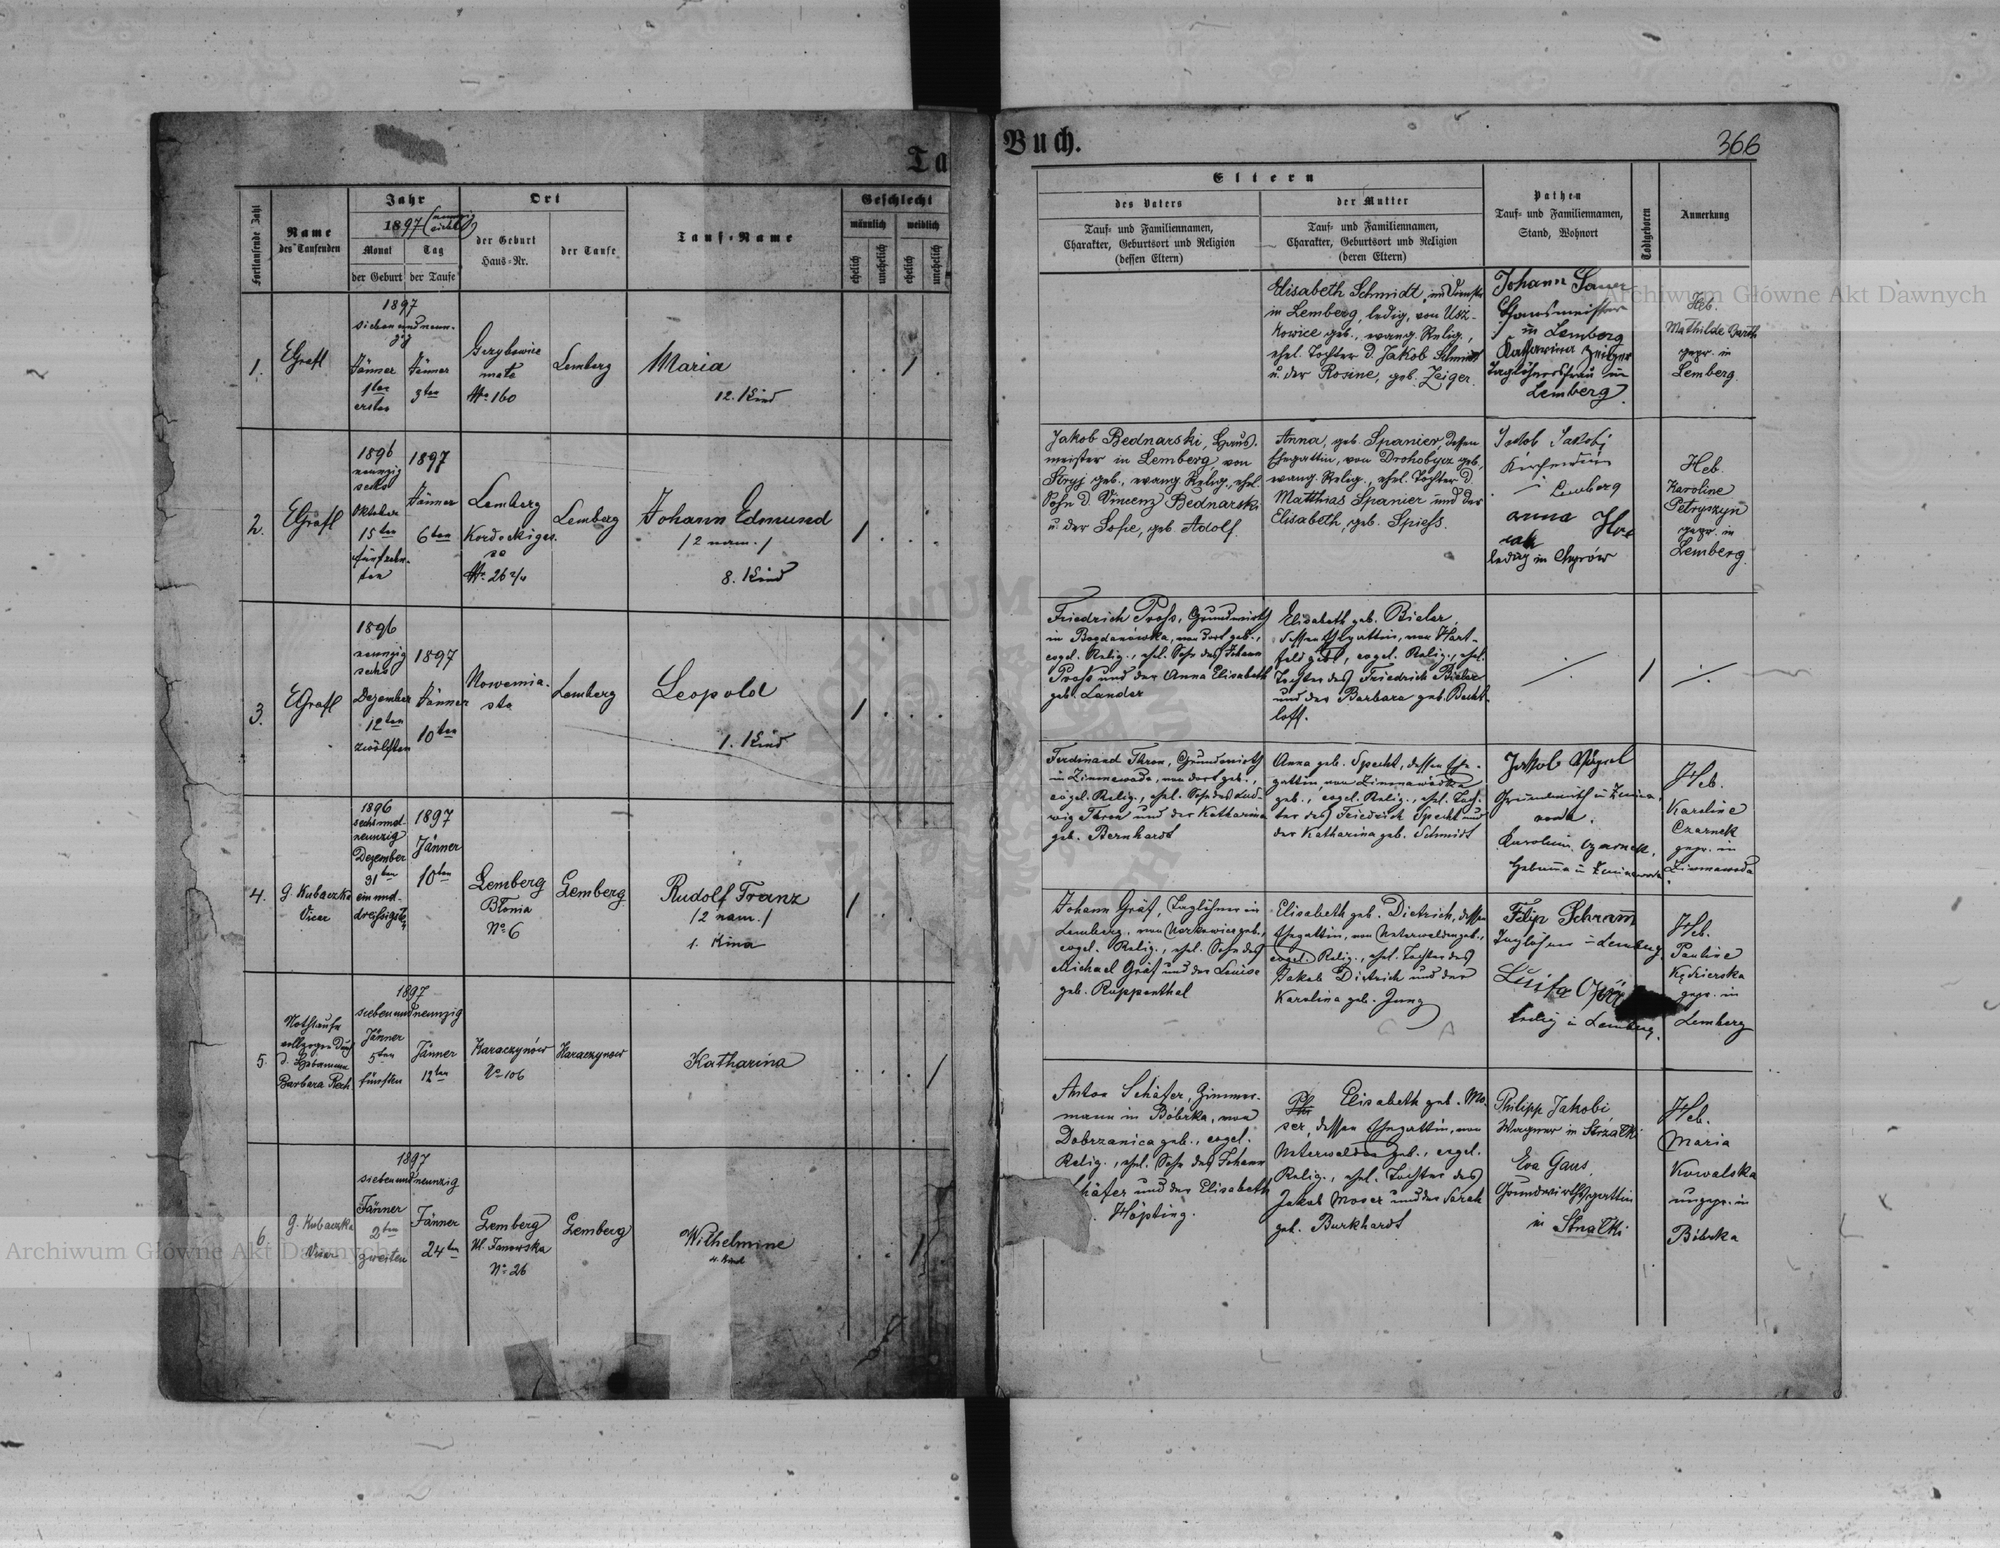 Ta
Buch.
366
Fortlaufende Zahl
Name
des Taufenden
Jahr
1897
Monat
Tag
der Geburt
der Taufe
Ort
der Geburt
Haus-Nr.
der Taufe
Tauf-Name
Geschlecht
männlich
weiblich
ehelich
unehelich
ehelich
unehelich
Eltern
des Vaters
Tauf- und Familiennamen,
Charakter, Geburtsort und Religion
(dessen Eltern)
der Mutter
Tauf- und Familiennamen,
Charakter, Geburtsort und Religion
(deren Eltern)
Pathen
Tauf- und Familiennamen,
Stand, Wohnort
Todtgeboren
Anmerkung
1.
EGrafl
1897
sieben und neun-
zig
Jänner
1ten
ersten
Jänner
3ten
No. 160
Lemberg
Maria
12. Kind
Elisabeth Schmidt, im Dienste
in Lemberg, ledig, von Usz-
kowice geb., evang. Relig.,
ehel. Tochter d. Jakob Schmidt
u. der Rosine, geb. Zeiger.
Johann Sauer
Hausmeister
in Lemberg
Katharina Zeiger
Taglöhnersfrau in
Lemberg
Heb.
Mathilde Barth
gepr. in
Lemberg.
2.
EGrafl
1896
neunzig
sechs
Oktober
15ten
fünfzehn-
ten
1897
Jänner
6ten
Lemberg
No. 26 2/4
Lemberg
Johann Edmund
/2 nam./
8. Kind
Jakob Bednarski, Haus-
meister in Lemberg, von
Stryj geb., evang. Relig., ehel.
Sohn d. Vincenz Bednarski
u. der Sofie, geb. Adolf.
Anna, geb. Spanier, dessen
Ehegattin, von Drohobycz geb.,
evang. Relig., ehel. Tochter d.
Matthias Spanier und der
Elisabeth, geb. Spiess.
Jakob Jakobi
Lemberg
Anna
ledig in Chyrów
Heb.
Karoline
Petryszyn
gepr. in
Lemberg.
3.
EGrafl
1896
neunzig
sechs
Dezember
12ten
zwölften
1897
Jänner
10ten
Nowemia-
sto
Lemberg
Leopold
1. Kind
Friedrich Pross, Grundwirth
in Bogdanówka, von dort geb.,
evgel. Relig., ehel. Sohn des Johann
Pross und der Anna Elisabeth
geb. Lander
Elisabeth geb. Bieler,
dessen Ehegattin, von Hart-
feld geb., evgel. Relig., ehel.
Tochter des Friedrich Bieler
und der Barbara geb. Becht-
loff.
4.
G. Kubaczka
Vicar
1896
sechs und
neunzig
Dezember
31ten
ein und
dreissigsten
1897
Jänner
10ten
Lemberg
Błonia
No 6
Lemberg
Rudolf Franz
/2 nam./
1. Kind
Ferdinand Thron, Grundwirth
in Zimnawoda, von dort geb.,
evgel. Relig., ehel. Sohn des Lud-
wig Thron und der Katharina
geb. Bernhardt
Anna geb. Specht, dessen Ehe-
gattin, von Zimnawódka
geb., evgel. Relig., ehel. Toch-
ter des Friedrich Specht und
der Katharina geb. Schmidt
Jakob
Grundwirth in Zimna-
woda.
Karolina Czarnek,
Hebamme in Zimnawoda
Heb.
Karoline
Czarnek
gepr. in
Zimnawoda
5.
Nothtaufe
vollzogen durch
d. Hebamme
Barbara Rech
1897
sieben und neunzig
Jänner
5ten
fünften
Jänner
12ten
Karaczynów
No 106
Karaczynow
Katharina
Johann Gräf, Taglöhner in
Lemberg, von Workowice geb.,
evgel. Relig., ehel. Sohn des
Michael Gräf und der Louise
geb. Ruppenthal
Elisabeth geb. Dietrich, dessen
Ehegattin, von Unterwalden geb.,
evgel. Relig., ehel. Tochter des
Jakob Dietrich und der
Karolina geb. Jung
Filip Schram
Taglöhner in Lemberg
ledig in Lemberg.
Heb.
Pauline
Kędzierska
gepr. in
Lemberg
6.
G. Kubaczka
Vicar
1897
sieben und neunzig
Jänner
2ten
zweiten
Jänner
24ten
Lemberg
Ul. Janowska
No 26
Lemberg
Wilhelmine
4. Kind
Anton Schäfer, Zimmer-
mann in Bóbrka, von
Dobrzanica geb., evgel.
Relig., ehel. Sohn des Johann
häfer und der Elisabeth
Höpting.
Elisabeth geb. Mo-
ser, dessen Ehegattin, von
Unterwalden geb., evgel.
Relig., ehel. Tochter des
Jakob Moser und der Sarah
geb. Burkhardt
Philipp Jakobi,
Wagner in Strzałki
Eva Gans
Grundwirthsgattin
in Strzałki
Heb.
Maria
Kowalska
ungepr. in
Bóbrka
Archiwum Główne Akt Dawnych
Archiwum Główne Akt Dawnych